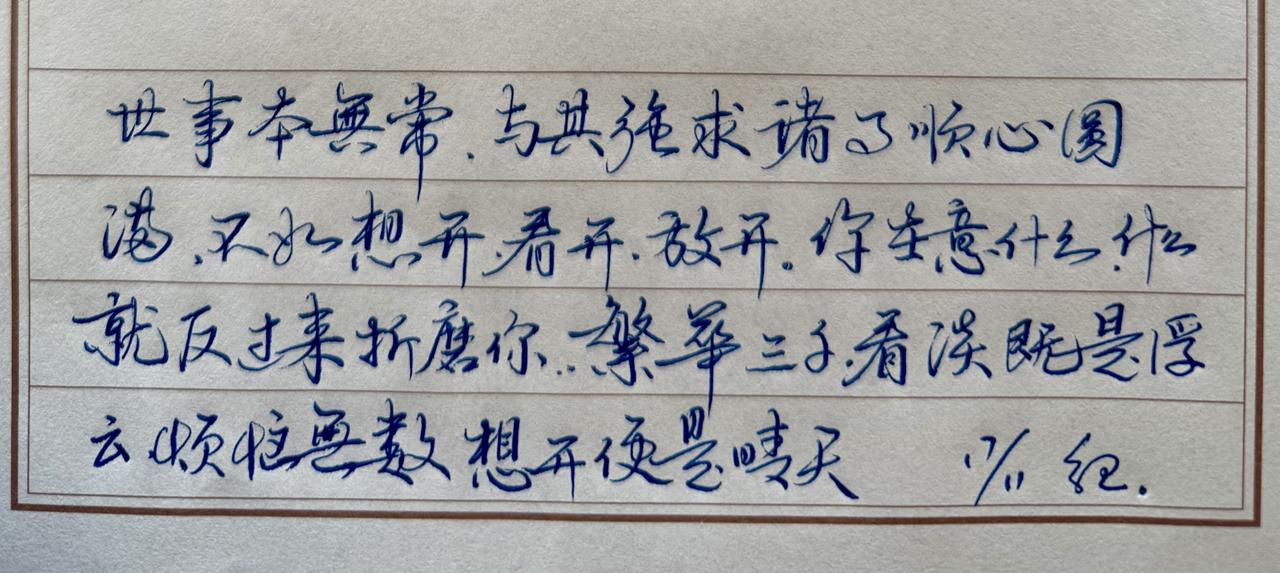 世事本無常.与其強求諸事顺心圆
满.不如想开.看开.放开。你在意什么.什么
就反过来折磨你..繁華三千.看淡既是浮
云.烦恼無数想开便是晴天 17/11 纪.